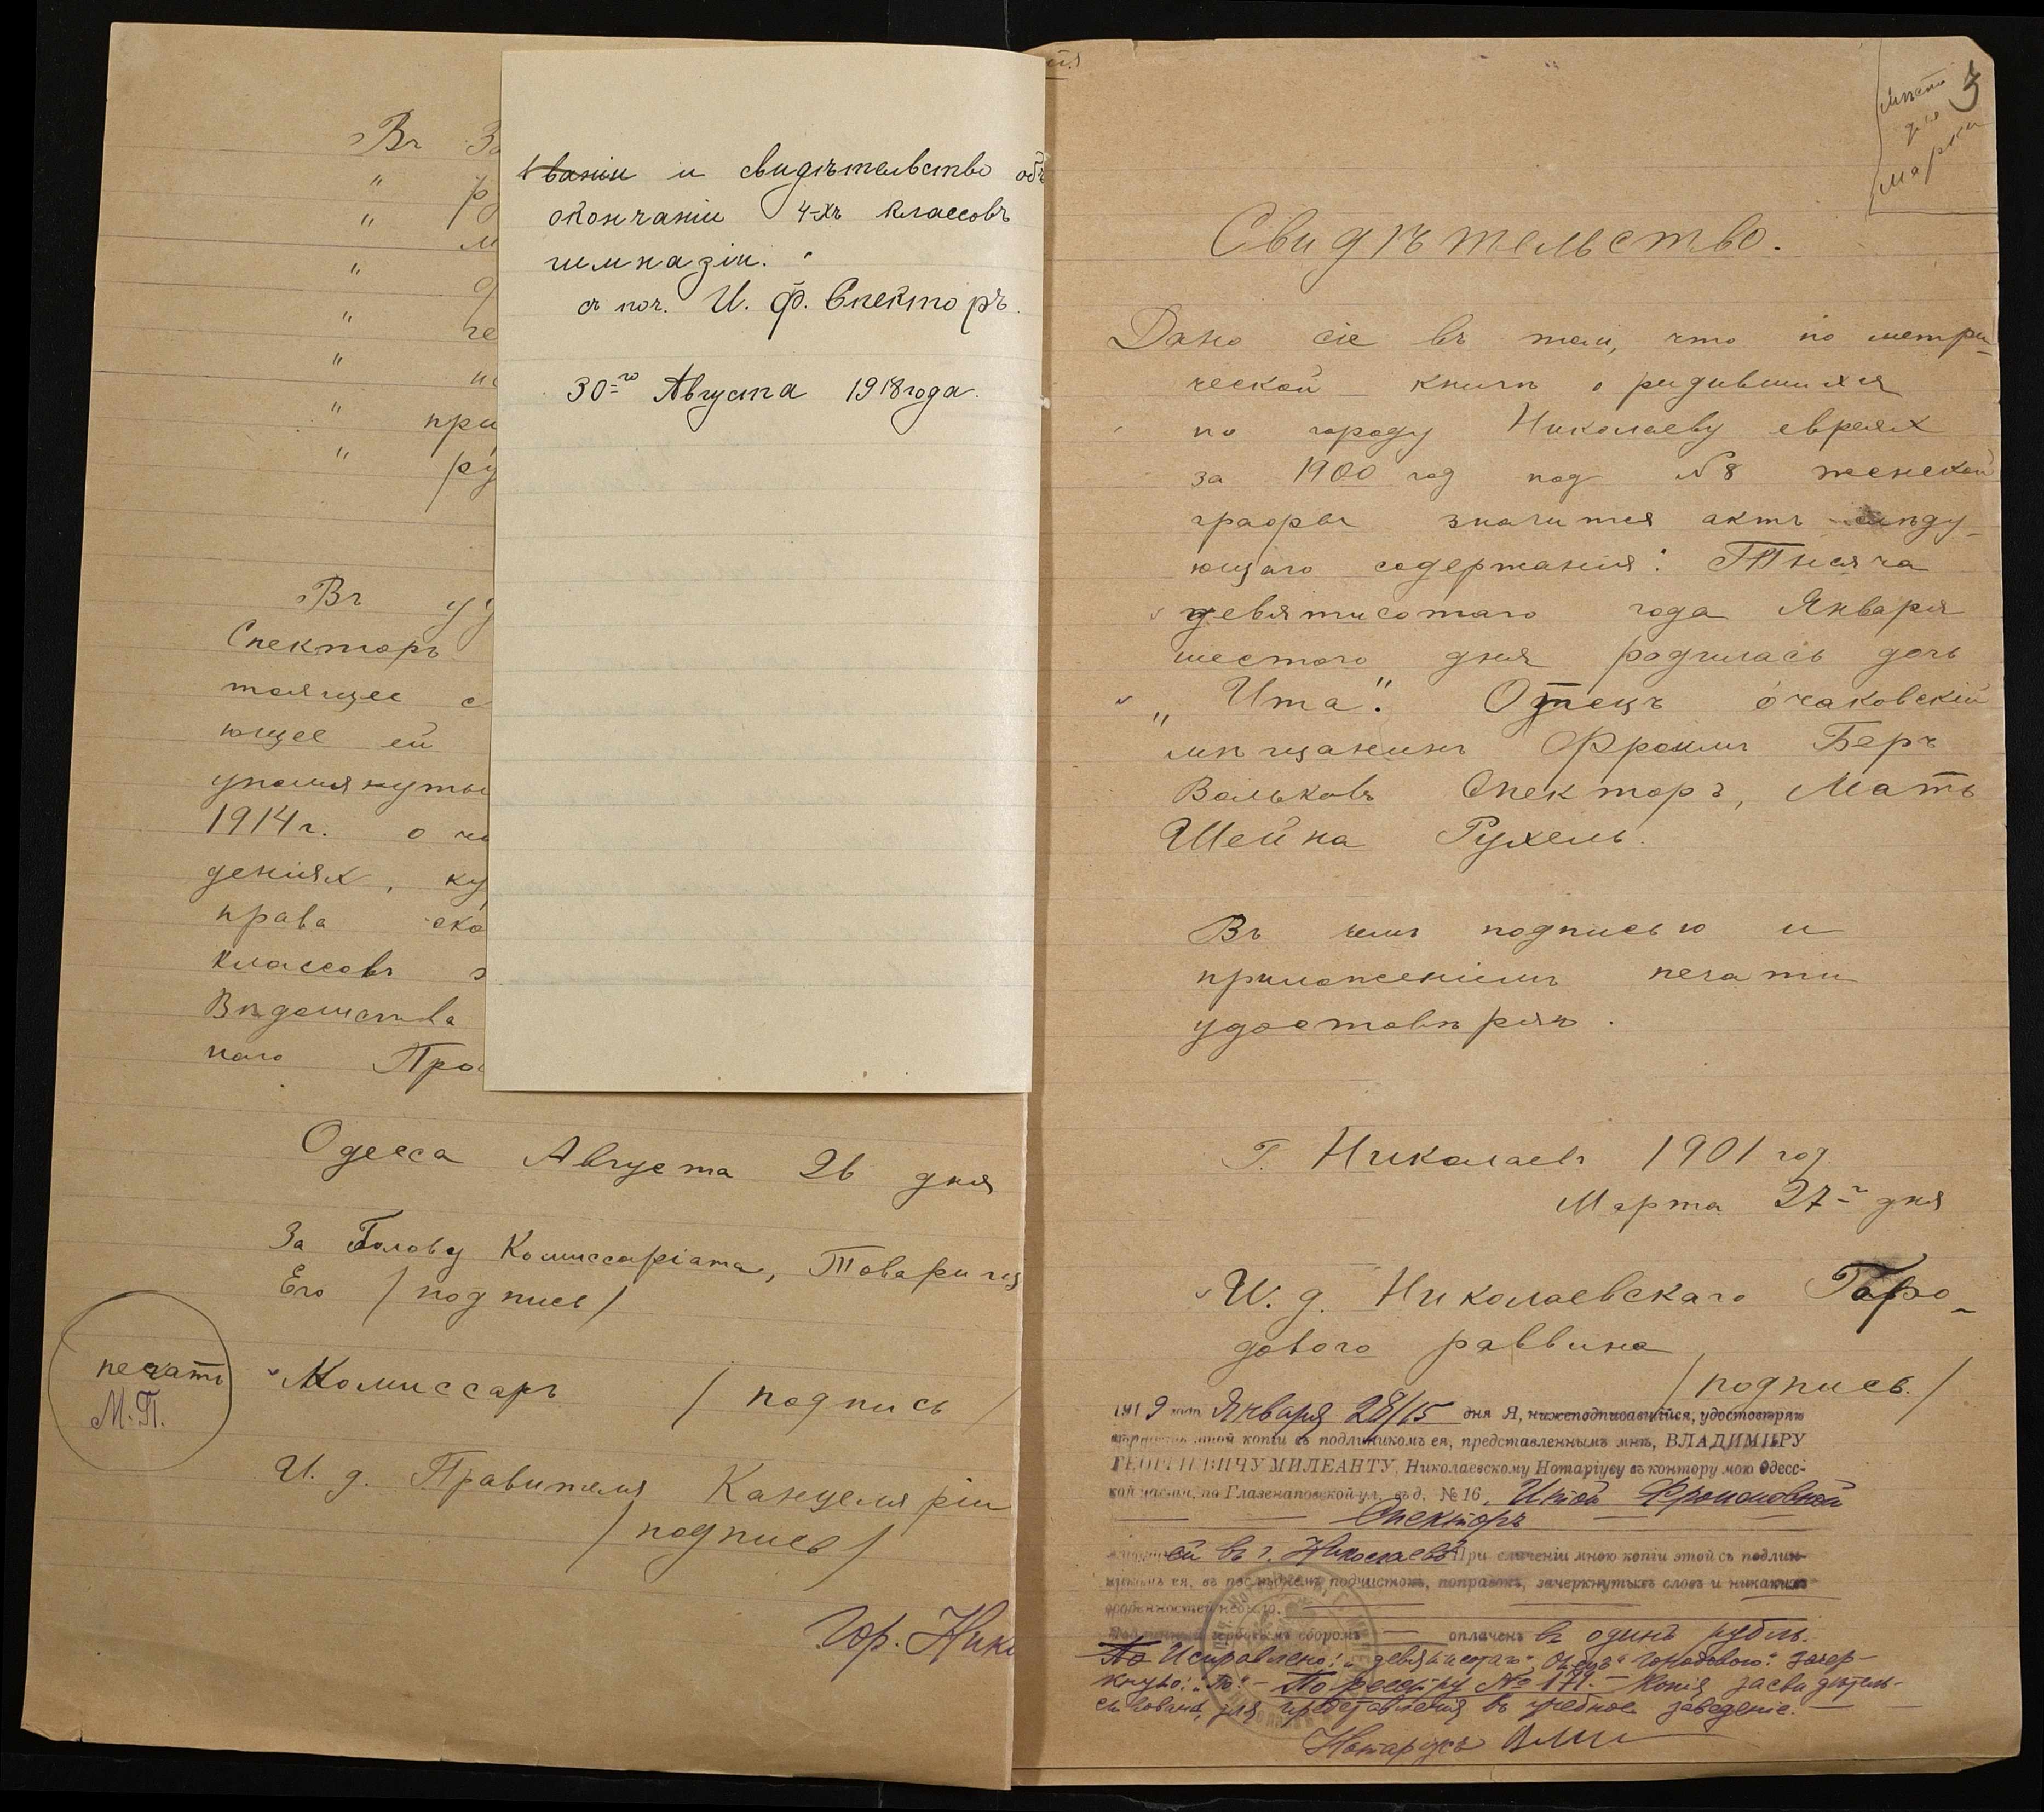 Въ
"
"
"
"
"
"
"
при
Въ
Спекторъ
тоящее
ющее ей
упомянуты
1914 г. о
деніях,
права
классовъ
Вѣдомства
наго Про
Одесса Августа 26 дня
За Голову Комиссаріата, Товарищ
Его /подпись/
печать
М.П.
Комиссаръ /подпись/
И. д. Правителя Канцеляріи
/подпись/
Гор. Нико
и свидѣтельство объ
окончаніи 4-хъ классовъ
гимназіи.
съ поч. И. Ф. Спекторъ.
30-го Августа 1918 года.
Мѣсто
для
Марки
3
Свидѣтельство.
Дано сіе въ том, что по метри-
ческой книгѣ о родившихся
по городу Николаеву евреях
за 1900 год под № 8 женской
графы значится актъ слѣду-
ющаго содержанія: Тысяча
девятисотаго года Января
шестого дня родилась дочь
„Ита". Отецъ очаковскій
мѣщанинъ Фроимъ Беръ
Вольковъ Спекторъ, Мать
Шейна Рухель.
Въ чемъ подписью и
приложеніемъ печати
удостовѣряю.
Г. Николаевъ 1901 год
Марта 27-г дня
И. д. Николаевскаго Горо-
дового раввина
/подпись./
1919 года Января 28/15 дня Я, нижеподписавшійся, удостовѣряю
вѣрность этой копіи съ подлинникомъ ея, представленнымъ мнѣ, ВЛАДИМІРУ
ГЕОРГІЕВИЧУ МИЛЕАНТУ, Николаевскому Нотаріусу въ контору мою Одесс-
кой части, по Глазенаповской ул. въ д. № 16, Итой Фроимовной
Спекторъ
ей въ г. Николаевѣ При сличеніи мною копіи этой съ подлин-
никомъ ея, въ послѣднемъ подчистокъ, поправокъ, зачеркнутыхъ словъ и никакихъ
особенностей не было.
Подлинный гербовымъ сборомъ оплаченъ въ одинъ рубль.
По Исправлено: „девятисотаго", Отецъ" Городового". Зачер-
кнуто: „По". – По реестру № 179. – Копія засвидѣтель-
ствована для представленія въ учебное заведеніе. –
Нотаріусъ